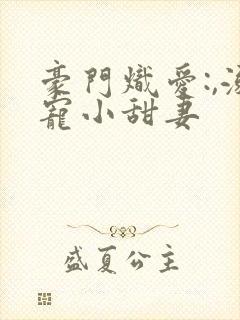 豪門熾愛:,溺
寵小甜妻
盛夏公主